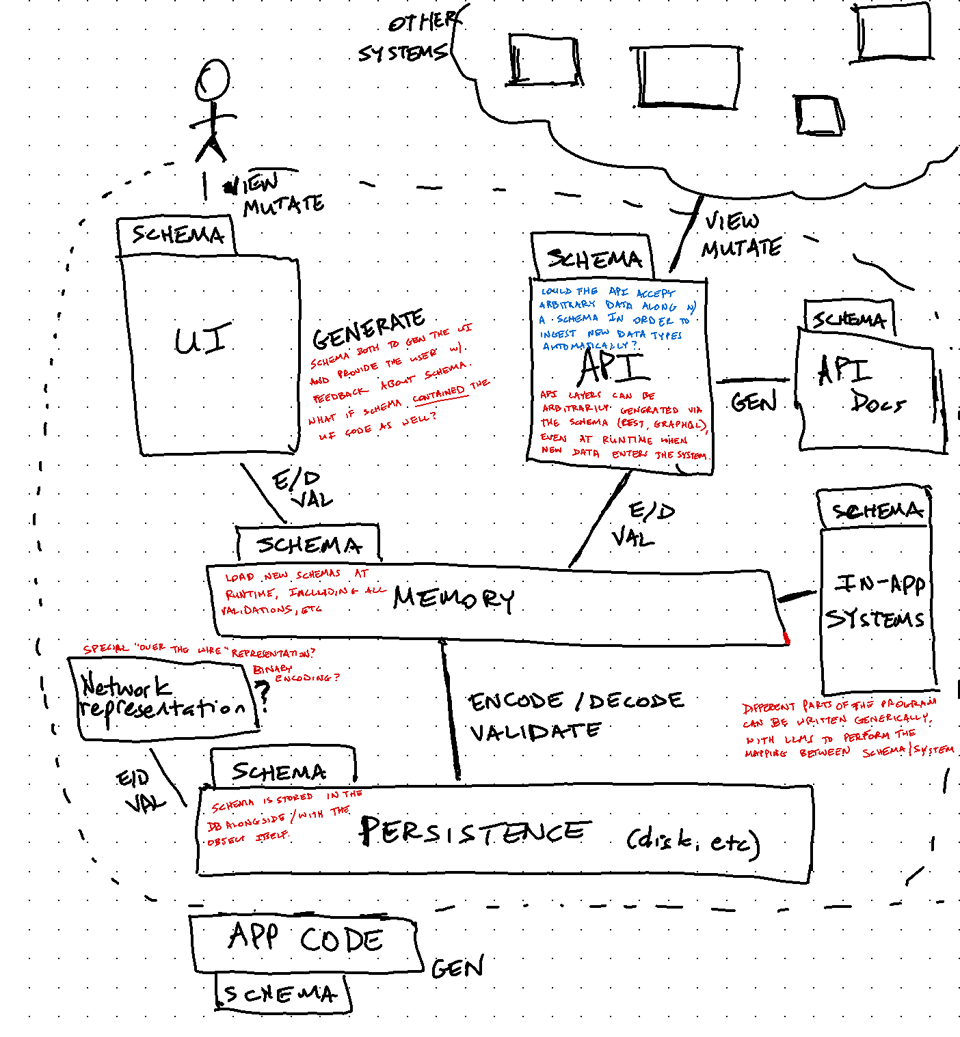 OTHER
SYSTEMS
VIEW
MUTATE
SCHEMA
UI
GENERATE
SCHEMA BOTH TO GEN THE UI
AND PROVIDE THE USER W/
FEEDBACK ABOUT SCHEMA.
WHAT IF SCHEMA CONTAINED THE
UI CODE AS WELL?
VIEW
MUTATE
SCHEMA
COULD THE API ACCEPT
ARBITRARY DATA ALONG W/
A SCHEMA IN ORDER TO
INGEST NEW DATA TYPES
AUTOMATICALLY?
API
API LAYERS CAN BE
ARBITRARILY GENERATED VIA
THE SCHEMA (REST, GRAPHQL),
EVEN AT RUNTIME WHEN
NEW DATA ENTERS THE SYSTEM.
GEN
SCHEMA
API
DOCS
E/D
VAL
E/D
VAL
SCHEMA
LOAD NEW SCHEMAS AT
RUNTIME, INCLUDING ALL
VALIDATIONS, ETC
MEMORY
SCHEMA
IN-APP
SYSTEMS
DIFFERENT PARTS OF THE PROGRAM
CAN BE WRITTEN GENERICALLY,
WITH LLMS TO PERFORM THE
MAPPING BETWEEN SCHEMA/SYSTEM
SPECIAL "OVER THE WIRE" REPRESENTATION?
BINARY
ENCODING?
Network
representation ?
ENCODE / DECODE
VALIDATE
E/D
VAL
SCHEMA
SCHEMA IS STORED IN THE
DB ALONGSIDE / WITH THE
OBJECT ITSELF.
PERSISTENCE (disk, etc)
APP CODE
GEN
SCHEMA